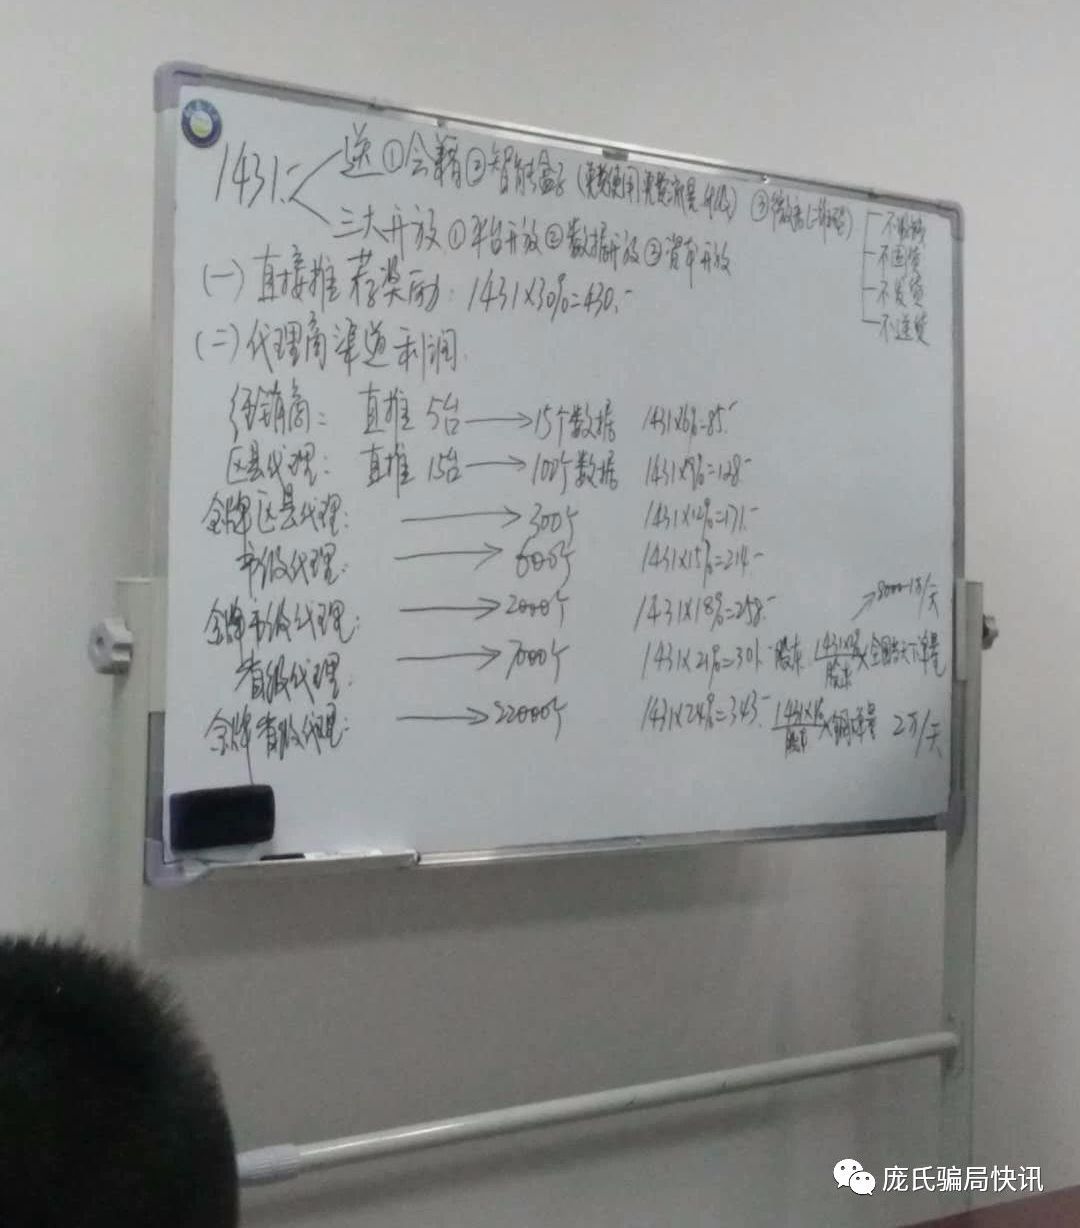 1431.- 送 ①会籍 ②智能盒子 (免费使用 免费流量 升级) ③微店(二维码)
三大开放 ①平台开放 ②数据开放 ③资本开放
不囤货
不发货
不送货
(一) 直接推荐奖励: 1431×30%=430.-
(二) 代理商渠道利润.
经销商: 直推 5台 → 15个数据 1431×6%=85.-
区县代理: 直推 15台 → 100个数据 1431×9%=128.-
金牌区县代理: → 300个 1431×12%=171.-
市级代理: → 600个 1431×15%=214.-
金牌市级代理: → 2000个 1431×18%=258.-
8000-1万/天
省级代理: → 7000个 1431×21%=301.- 股东 ×全国当天下单量
股东
金牌省级代理: → 22000个 1431×24%=343.- 2万/天
庞氏骗局快讯